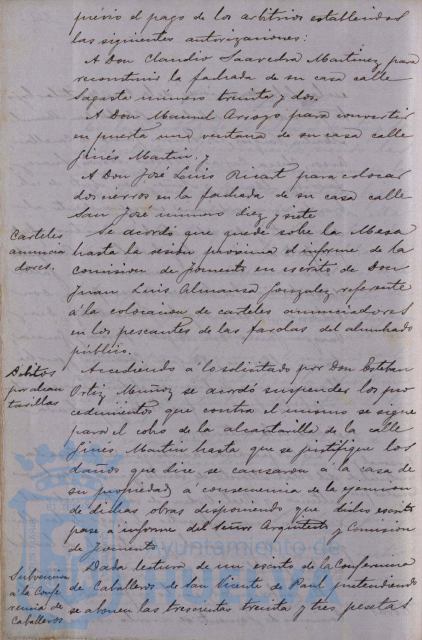 previo el pago de los arbitrios establecidos
las siguientes autorizaciones:
A Don Claudio Saavedra Martinez para
reconstruir la fachada de su casa calle
Sagasta número treinta y dos.
A Don Manuel Arroyo para convertir
en puerta una ventana de su casa calle
Ginés Martin y
A Don José Luis Ricat para colocar
dos hierros en la fachada de su casa calle
San José número diez y siete
Carteles
anuncia
dores.
Se acordó que quede sobre la Mesa
hasta la sesión próxima el informe de la
comision de fomento en escrito de Don
Juan Luis Almansa Gonzalez referente
á la colocacion de carteles anunciadores
en los pescantes de las farolas del alumbrado
público.
Débitos
por alcan
tarillas
Accediendo á lo solicitado por Don Esteban
Ortiz Muñoz se acordó suspender los pro
cedimientos que contra el mismo se sigue
para el cobro de la alcantarilla de la calle
Ginés Martin hasta que se justifique los
daños que dice se causaron á la casa de
su propiedad á consecuencia de la ejecucion
de dichas obras disponiendo que dicho escrito
pase á informe del Señor Arquitecto y Comision
de Fomento.
Subvencion
á la Confe
rencia de
Caballeros
Dada lectura de un escrito de la Conferencia
de Caballeros de San Vicente de Paul pretendiendo
se abonen las trescientas treinta y tres pesetas
Ayuntamiento de